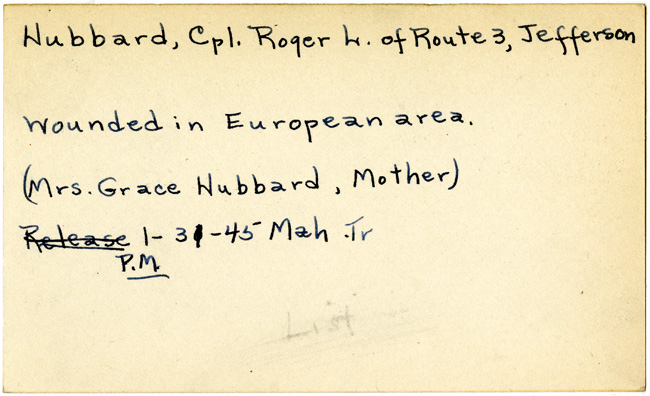 Hubbard, Cpl. Roger L. of Route 3, Jefferson
Wounded in European area.
(Mrs. Grace Hubbard, Mother)
Release 1-31-45 Mah .Tr
P.M.
List